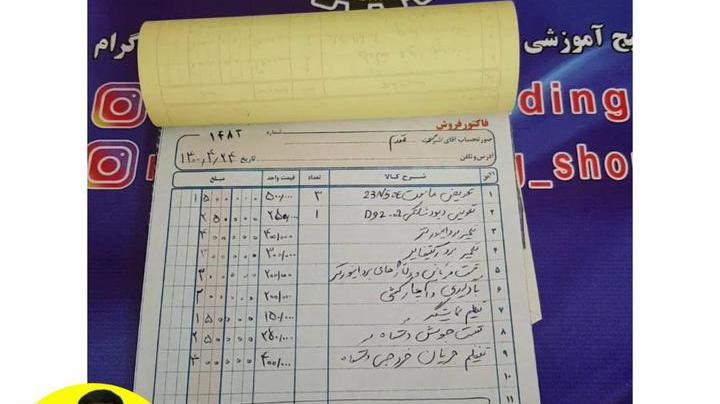 یج آموزشی
گرام
ding
g_shop
فاکتور فروش
شماره ۱۴۸۲
صورتحساب آقای
آدرس و تلفن تاریخ ۱۴۰۰/۴/۲۴
شرح کالا تعداد قیمت واحد مبلغ
۱ تعویض ماسفت 23N50E ۳ ۵۰/۰۰۰ ۱۵۰۰۰۰
۲ تعویض دیود شاتکی D92-02 ۱ ۲۵۰/۰۰۰ ۲۵۰۰۰۰
۳ تعمیر برد اینورتر ۴۰۰/۰۰۰ ۴۰۰۰۰۰
۴ تعمیر برد رکتیفایر ۳۰۰/۰۰۰ ۳۰۰۰۰۰
۵ تست فرکانس و ولتاژهای برد اینورتر ۲۰۰/۰۰۰
۶ بادگیری و آچارکشی ۲۰۰/۰۰۰ ۲۰۰۰۰۰
۷ تنظیم نمایشگر ۱۵۰/۰۰۰ ۱۵۰۰۰۰
۸ تست جوش دستگاه ۲۵۰/۰۰۰ ۲۵۰۰۰۰
۹ تنظیم جریان خروجی دستگاه ۴۰۰/۰۰۰ ۴۰۰۰۰۰
۱۰
۱۱